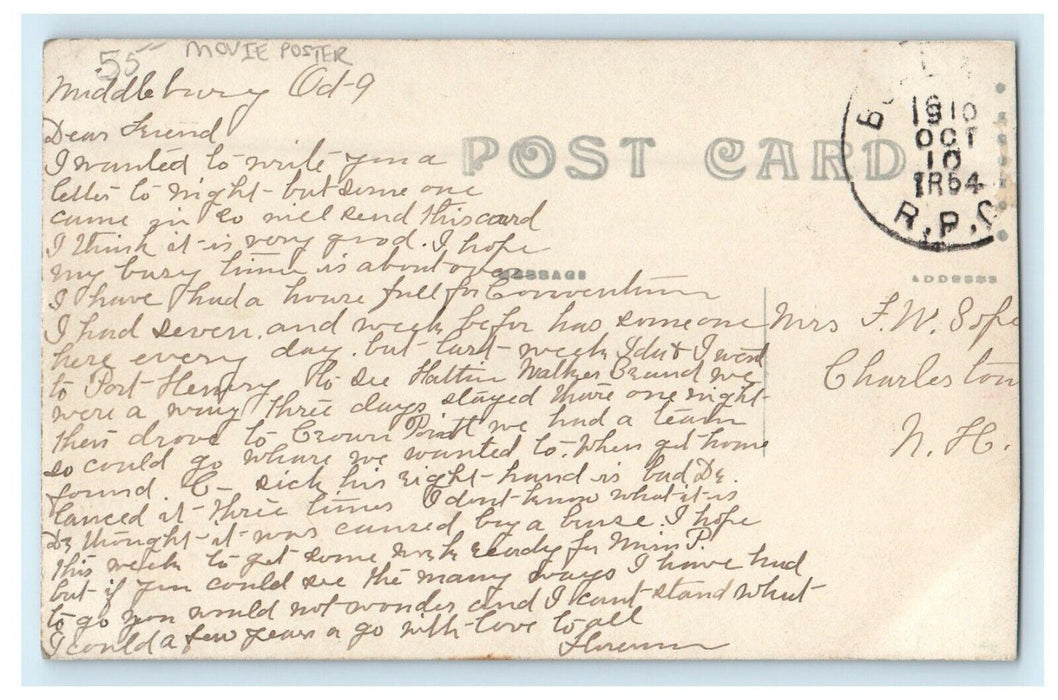 55
MOVIE POSTER
Middlebury Oct-9
Dear Friend
I wanted to write you a
letter to night-but some one
came in so will send this card
I think it-is very good. I hope
my busy time is about over
I have had a house full for Convention
I had seven. and week befor has someone
here every day. but last-week I went
to Port-Henry to see Hattie Walker and we
were a way three days stayed there one night-
then drove to Crown Point we had a team
so could go where we wanted to. When got home
found. C- sick his right-hand is bad Dr.
lanced it-three times I dont-know what it-is
Dr thought-it-was caused by a bruse. I hope
this week to get some work ready for Miss P.
but if you could see the many ways I have had
to go you would not wonder and I cant-stand what
I could a few years a go with-love to all
POST CARD
MESSAGE
ADDRESS
1910
OCT
10
TR54
R.P.O
Mrs F.W.
Charleston
N. H.